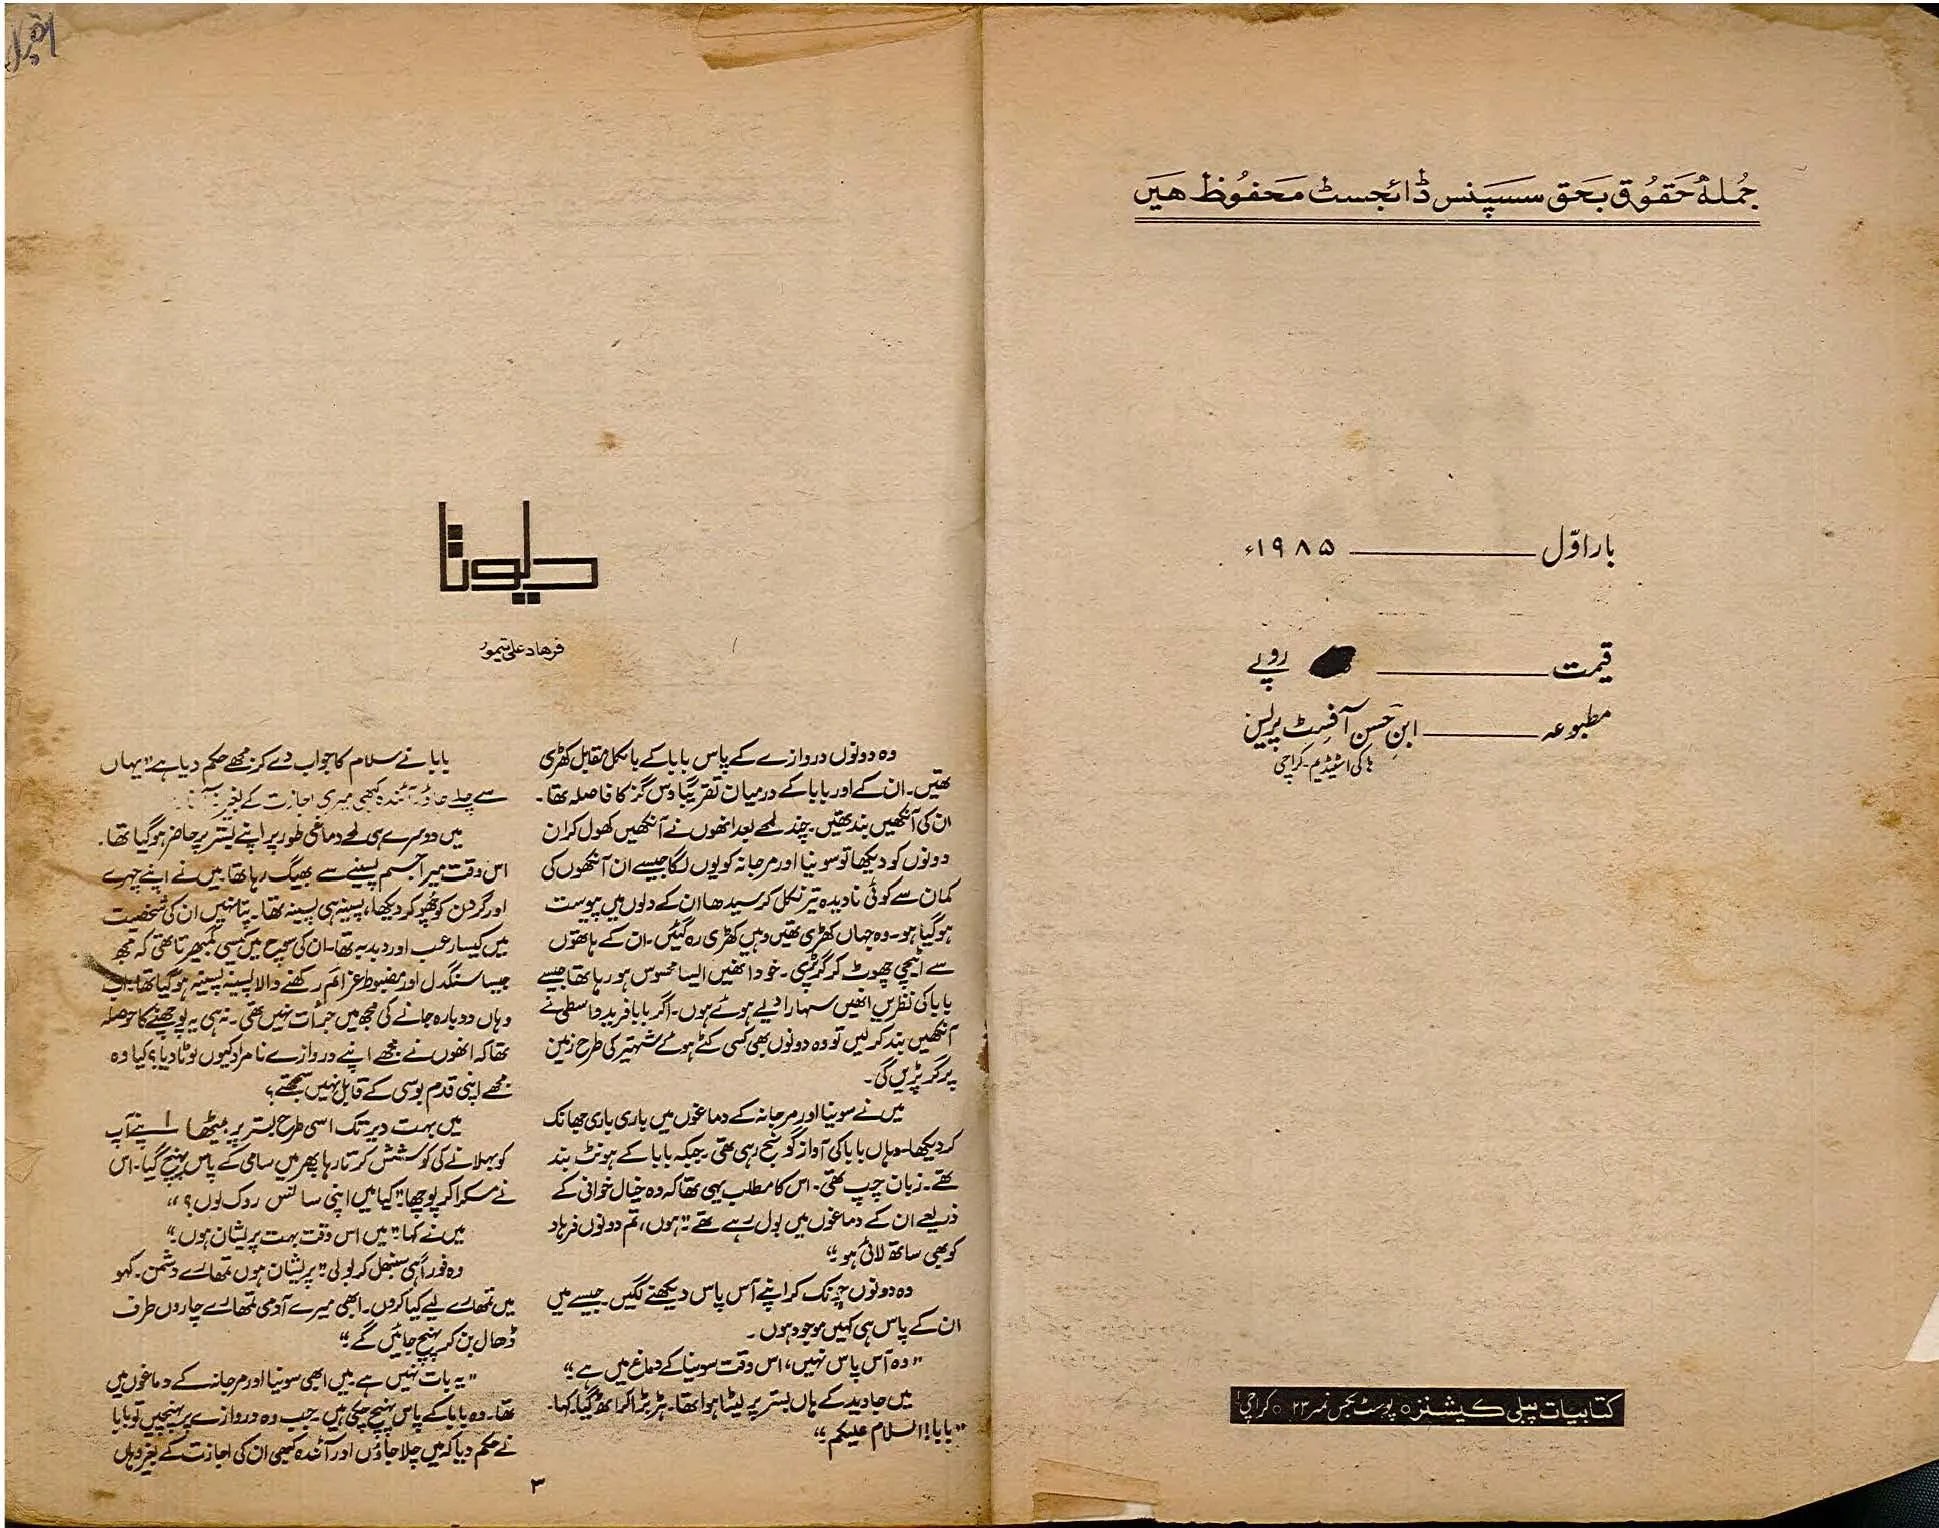 جُملہ حقوق بحق سسپنس ڈائجسٹ محفوظ ہیں
بار اوّل ــــــــ ۱۹۸۵ء
قیمت ــــــــ روپے
مطبوعہ ــــــــ ابنِ حسن آفسٹ پریس
ہاکی اسٹیڈیم ۔ کراچی
کتابیات پبلی کیشنز ○ پوسٹ بکس نمبر ۲۳ ○ کراچی ۱
دیوتا
فرهاد علی تیمور
وہ دونوں دروازے کے پاس بابا کے بالکل مقابل کھڑی
تھیں۔ ان کے اور بابا کے درمیان تقریباً دس گز کا فاصلہ تھا۔
ان کی آنکھیں بند تھیں۔ چند لمحے بعد انھوں نے آنکھیں کھول کر ان
دونوں کو دیکھا تو سونیا اور مرجانہ کو یوں لگا جیسے ان آنکھوں کی
کمان سے کوئی نادیدہ تیر نکل کر سیدھا ان کے دلوں میں پیوست
ہو گیا ہو۔ وہ جہاں کھڑی تھیں وہیں کھڑی رہ گئیں۔ ان کے ہاتھوں
سے اٹیچی چھوٹ کر گر پڑی۔ خود انھیں ایسا محسوس ہو رہا تھا جیسے
بابا کی نظریں انھیں سہارا دیے ہوئے ہوں۔ اگر بابا فرید واسطی نے
آنکھیں بند کر لیں تو وہ دونوں بھی کسی کٹے ہوئے شہتیر کی طرح زمین
پر گر پڑیں گی۔
میں نے سونیا اور مرجانہ کے دماغوں میں باری باری جھانک
کر دیکھا۔ وہاں بابا کی آواز گونج رہی تھی۔ جبکہ بابا کے ہونٹ بند
تھے۔ زبان چپ تھی۔ اس کا مطلب یہی تھا کہ وہ خیال خوانی کے
ذریعے ان کے دماغوں میں بول رہے تھے "ہوں، تم دونوں فرہاد
کو بھی ساتھ لائی ہو۔"
وہ دونوں چونک کر اپنے آس پاس دیکھنے لگیں۔ جیسے میں
ان کے پاس ہی کہیں موجود ہوں۔
"وہ آس پاس نہیں، اس وقت سونیا کے دماغ میں ہے۔"
میں جاوید کے ہاں بستر پر لیٹا ہوا تھا۔ ہڑبڑا کر اٹھ گیا۔ کہا۔
"بابا! السلام علیکم۔"
بابا نے سلام کا جواب دے کر مجھے حکم دیا ہے "یہاں
سے چلے جاؤ۔ آئندہ کبھی میری اجازت کے بغیر نہ آنا
میں دوسرے ہی لمحے دماغی طور پر اپنے بستر پر حاضر ہو گیا تھا۔
اس وقت میرا جسم پسینے سے بھیگ رہا تھا۔ میں نے اپنے چہرے
اور گردن کو چھو کر دیکھا، پسینہ ہی پسینہ تھا۔ پتا نہیں ان کی شخصیت
میں کیسا رعب اور دبدبہ تھا۔ ان کی سوچ میں کیسی گمبھیرتا تھی کہ مجھ
جیسا سنگدل اور مضبوط عزائم رکھنے والا پسینہ پسینہ ہو گیا تھا۔ اب
وہاں دوبارہ جانے کی مجھ میں جرأت نہیں تھی۔ نہ ہی یہ پوچھنے کا حوصلہ
تھا کہ انھوں نے مجھے اپنے دروازے نامراد کیوں لوٹا دیا؟ کیا وہ
مجھے اپنی قدم بوسی کے قابل نہیں سمجھتے؟
میں بہت دیر تک اسی طرح بستر پر بیٹھا اپنے آپ
کو بہلانے کی کوشش کرتا رہا پھر میں سامی کے پاس پہنچ گیا۔ اس
نے مسکرا کر پوچھا "کیا میں اپنی سانس روک لوں؟"
میں نے کہا "میں اس وقت بہت پریشان ہوں۔"
وہ فوراً ہی سنبھل کر بولی "پریشان ہوں تمھارے دشمن۔ کہو
میں تمھارے لیے کیا کروں۔ ابھی میرے آدمی تمھارے چاروں طرف
ڈھال بن کر پہنچ جائیں گے۔"
"یہ بات نہیں ہے۔ میں ابھی سونیا اور مرجانہ کے دماغوں میں
تھا۔ وہ بابا کے پاس پہنچ چکی ہیں۔ جب وہ دروازے پر پہنچیں تو بابا
نے حکم دیا کہ میں چلا جاؤں اور آئندہ کبھی ان کی اجازت کے بغیر وہاں
۳